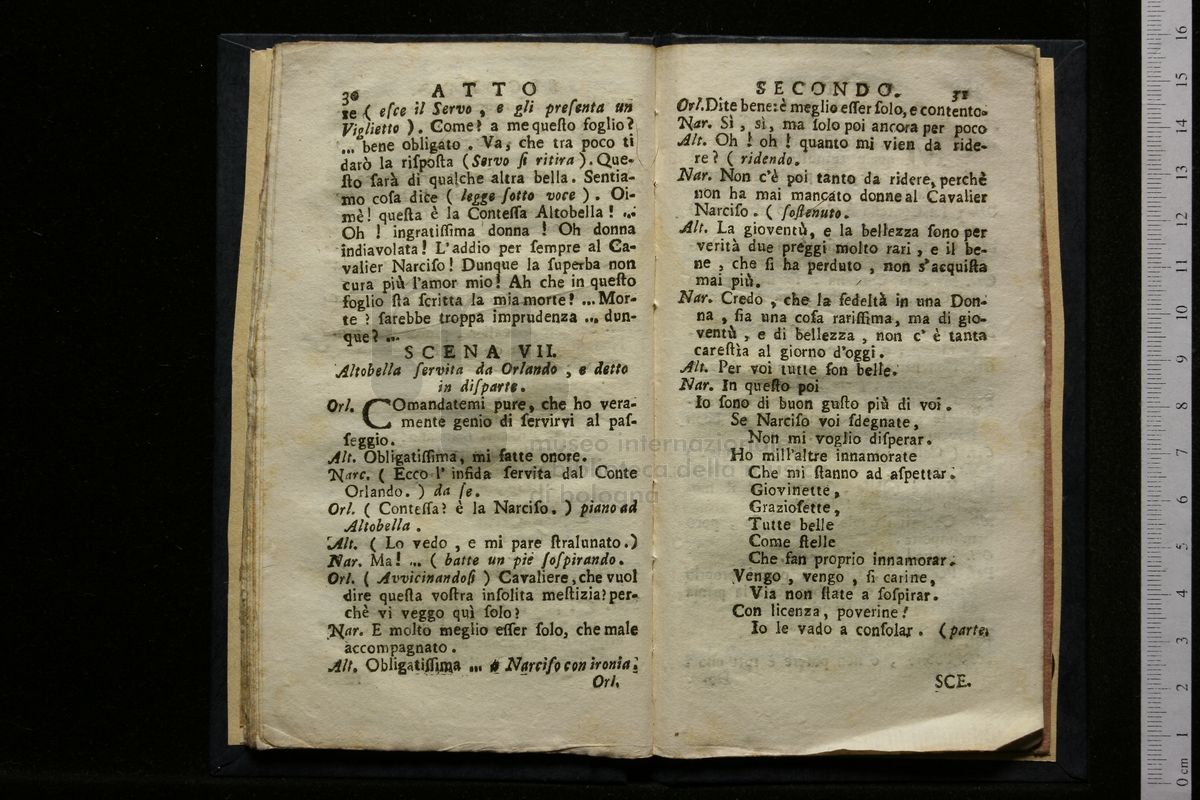 30
ATTO
re ( eſce il Servo , e gli preſenta un
Viglietto ) . Come? a me queſto foglio?
... bene obligato . Va, che tra poco ti
darò la riſpoſta ( Servo ſi ritira ) . Que-
ſto ſarà di qualche altra bella . Sentia-
mo coſa dice ( legge ſotto voce ) . Oi-
mè! queſta è la Conteſſa Altobella ! ...
Oh ! ingratiſſima donna ! Oh donna
indiavolata! L'addio per ſempre al Ca-
valier Narciſo! Dunque la ſuperba non
cura più l'amor mio! Ah che in queſto
foglio ſta ſcritta la mia morte! ... Mor-
te ? ſarebbe troppa imprudenza ... dun-
que? ...
SCENA VII.
Altobella ſervita da Orlando , e detto
in diſparte.
Orl. COmandatemi pure, che ho vera-
mente genio di ſervirvi al paſ-
ſeggio.
Alt. Obligatiſſima, mi fatte onore.
Narc. ( Ecco l' infida ſervita dal Conte
Orlando. ) da ſe.
Orl. ( Conteſſa? è la Narciſo. ) piano ad
Altobella .
Alt. ( Lo vedo , e mi pare ſtralunato.)
Nar. Ma! ... ( batte un piè ſoſpirando.
Orl. ( Avvicinandoſi ) Cavaliere, che vuol
dire queſta voſtra inſolita meſtizia? per-
chè vi veggo quì ſolo?
Nar. E molto meglio eſſer ſolo, che male
accompagnato .
Alt. Obligatiſſima ... a Narciſo con ironia.
Orl.
SECONDO.
31
Orl. Dite bene: è meglio eſſer ſolo, e contento.
Nar. Sì , sì, ma ſolo poi ancora per poco
Alt. Oh ! oh ! quanto mi vien da ride-
re? ( ridendo.
Nar. Non c'è poi tanto da ridere, perchè
non ha mai mancato donne al Cavalier
Narciſo . ( ſoſtenuto.
Alt. La gioventù, e la bellezza ſono per
verità due preggi molto rari , e il be-
ne , che ſi ha perduto , non s'acquiſta
mai più.
Nar. Credo , che la fedeltà in una Don-
na , ſia una coſa rariſſima, ma di gio-
ventù , e di bellezza , non c' è tanta
careſtìa al giorno d'oggi .
Alt. Per voi tutte ſon belle.
Nar. In queſto poi
Io ſono di buon guſto più di voi .
Se Narciſo voi ſdegnate,
Non mi voglio diſperar.
Ho mill'altre innamorate
Che mi ſtanno ad aſpettar.
Giovinette,
Grazioſette,
Tutte belle
Come ſtelle
Che fan proprio innamorar.
Vengo , vengo , ſi carine,
Via non ſtate a ſoſpirar.
Con licenza, poverine!
Io le vado a conſolar. (parte.
SCE.
museo internazionale
biblioteca della musica
di bologna
0 cm 1 2 3 4 5 6 7 8 9 10 11 12 13 14 15 16